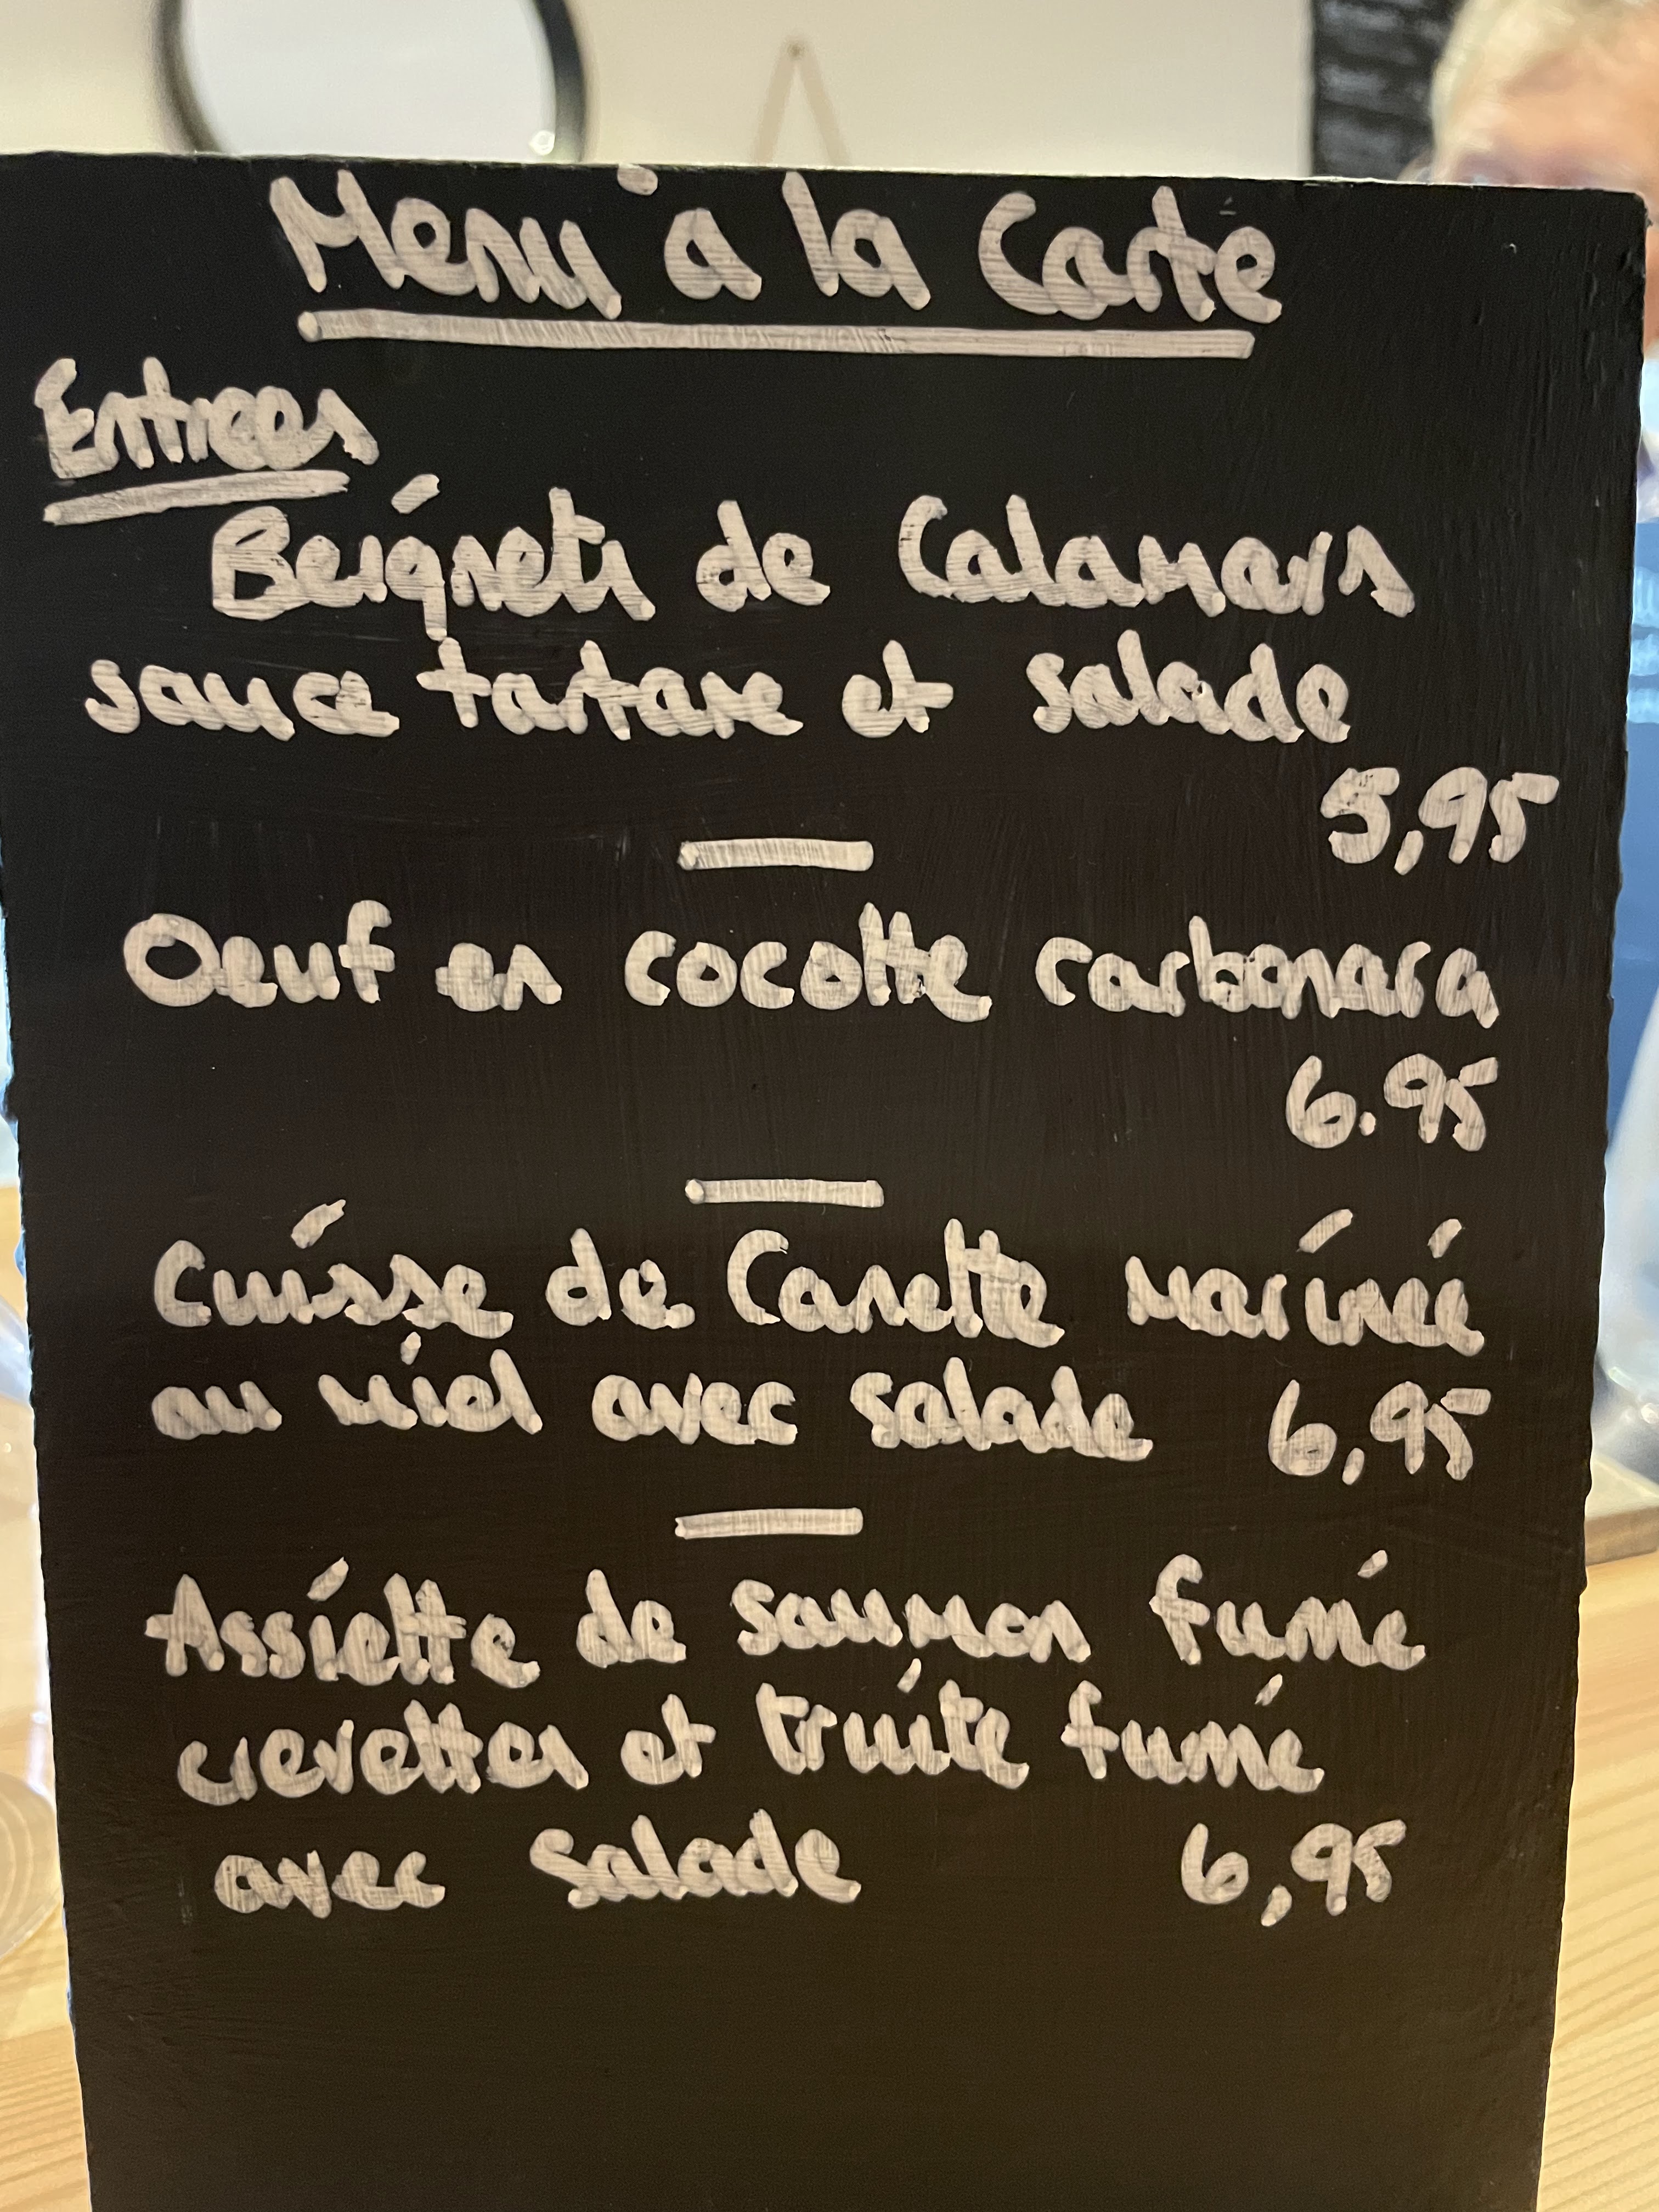 Menu à la Carte
Entrees
Beignets de Calamars
sauce tartare et salade
5,95
Oeuf en cocotte carbonara
6.95
Cuisse de Canette marinée
au miel avec salade 6,95
Assiette de saumon fumé
crevettes et truite fumé
avec salade 6,95